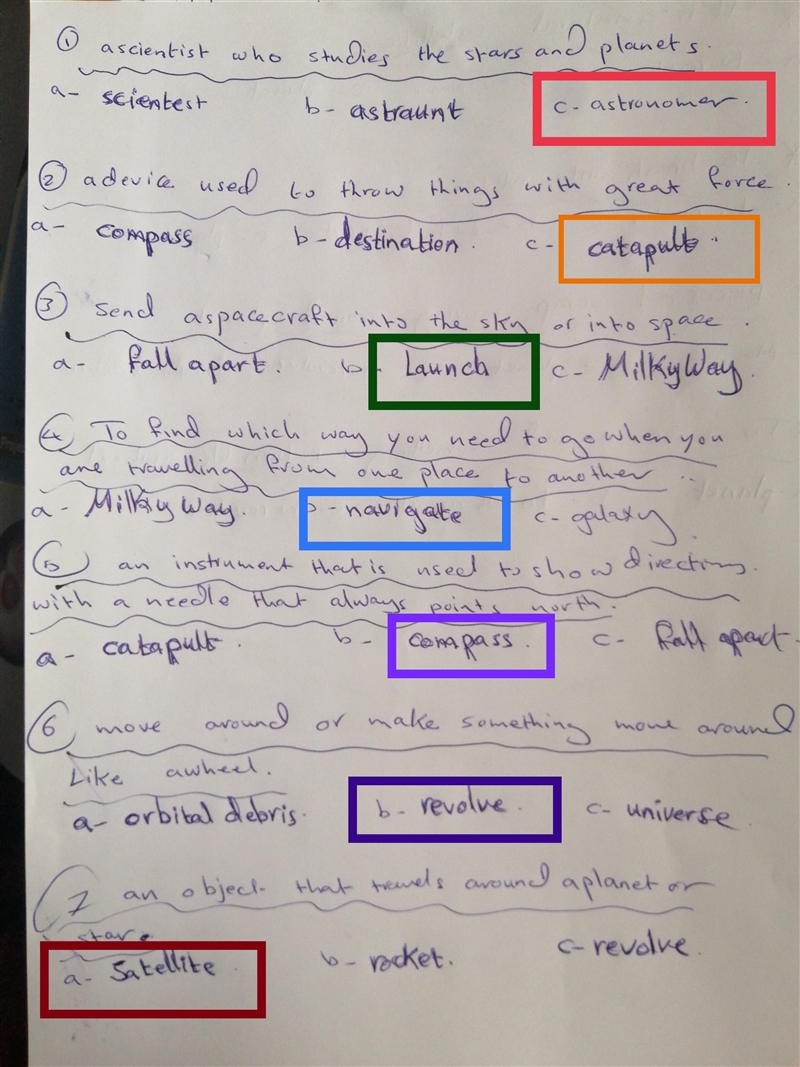 ① ascientist who studies the stars and planets.
a- scientest b- astraunt c- astronomer.
② adevice used to throw things with great force.
a- compass b- destination. c- catapult.
③ Send aspacecraft into the sky or into space.
a- fall apart. b- Launch c- MilkyWay.
④ To find which way you need to go when you
are travelling from one place to another..
a- Milky Way. b- navigate c- galaxy.
⑤ an instrument that is used to show directions.
with a needle that always points north.
a- catapult. b- compass. c- fall apart.
⑥ move around or make something move around
Like awheel.
a- orbital debris. b- revolve. c- universe.
7 an object that travels around aplanet or
star.
a- Satellite b- rocket. c- revolve.